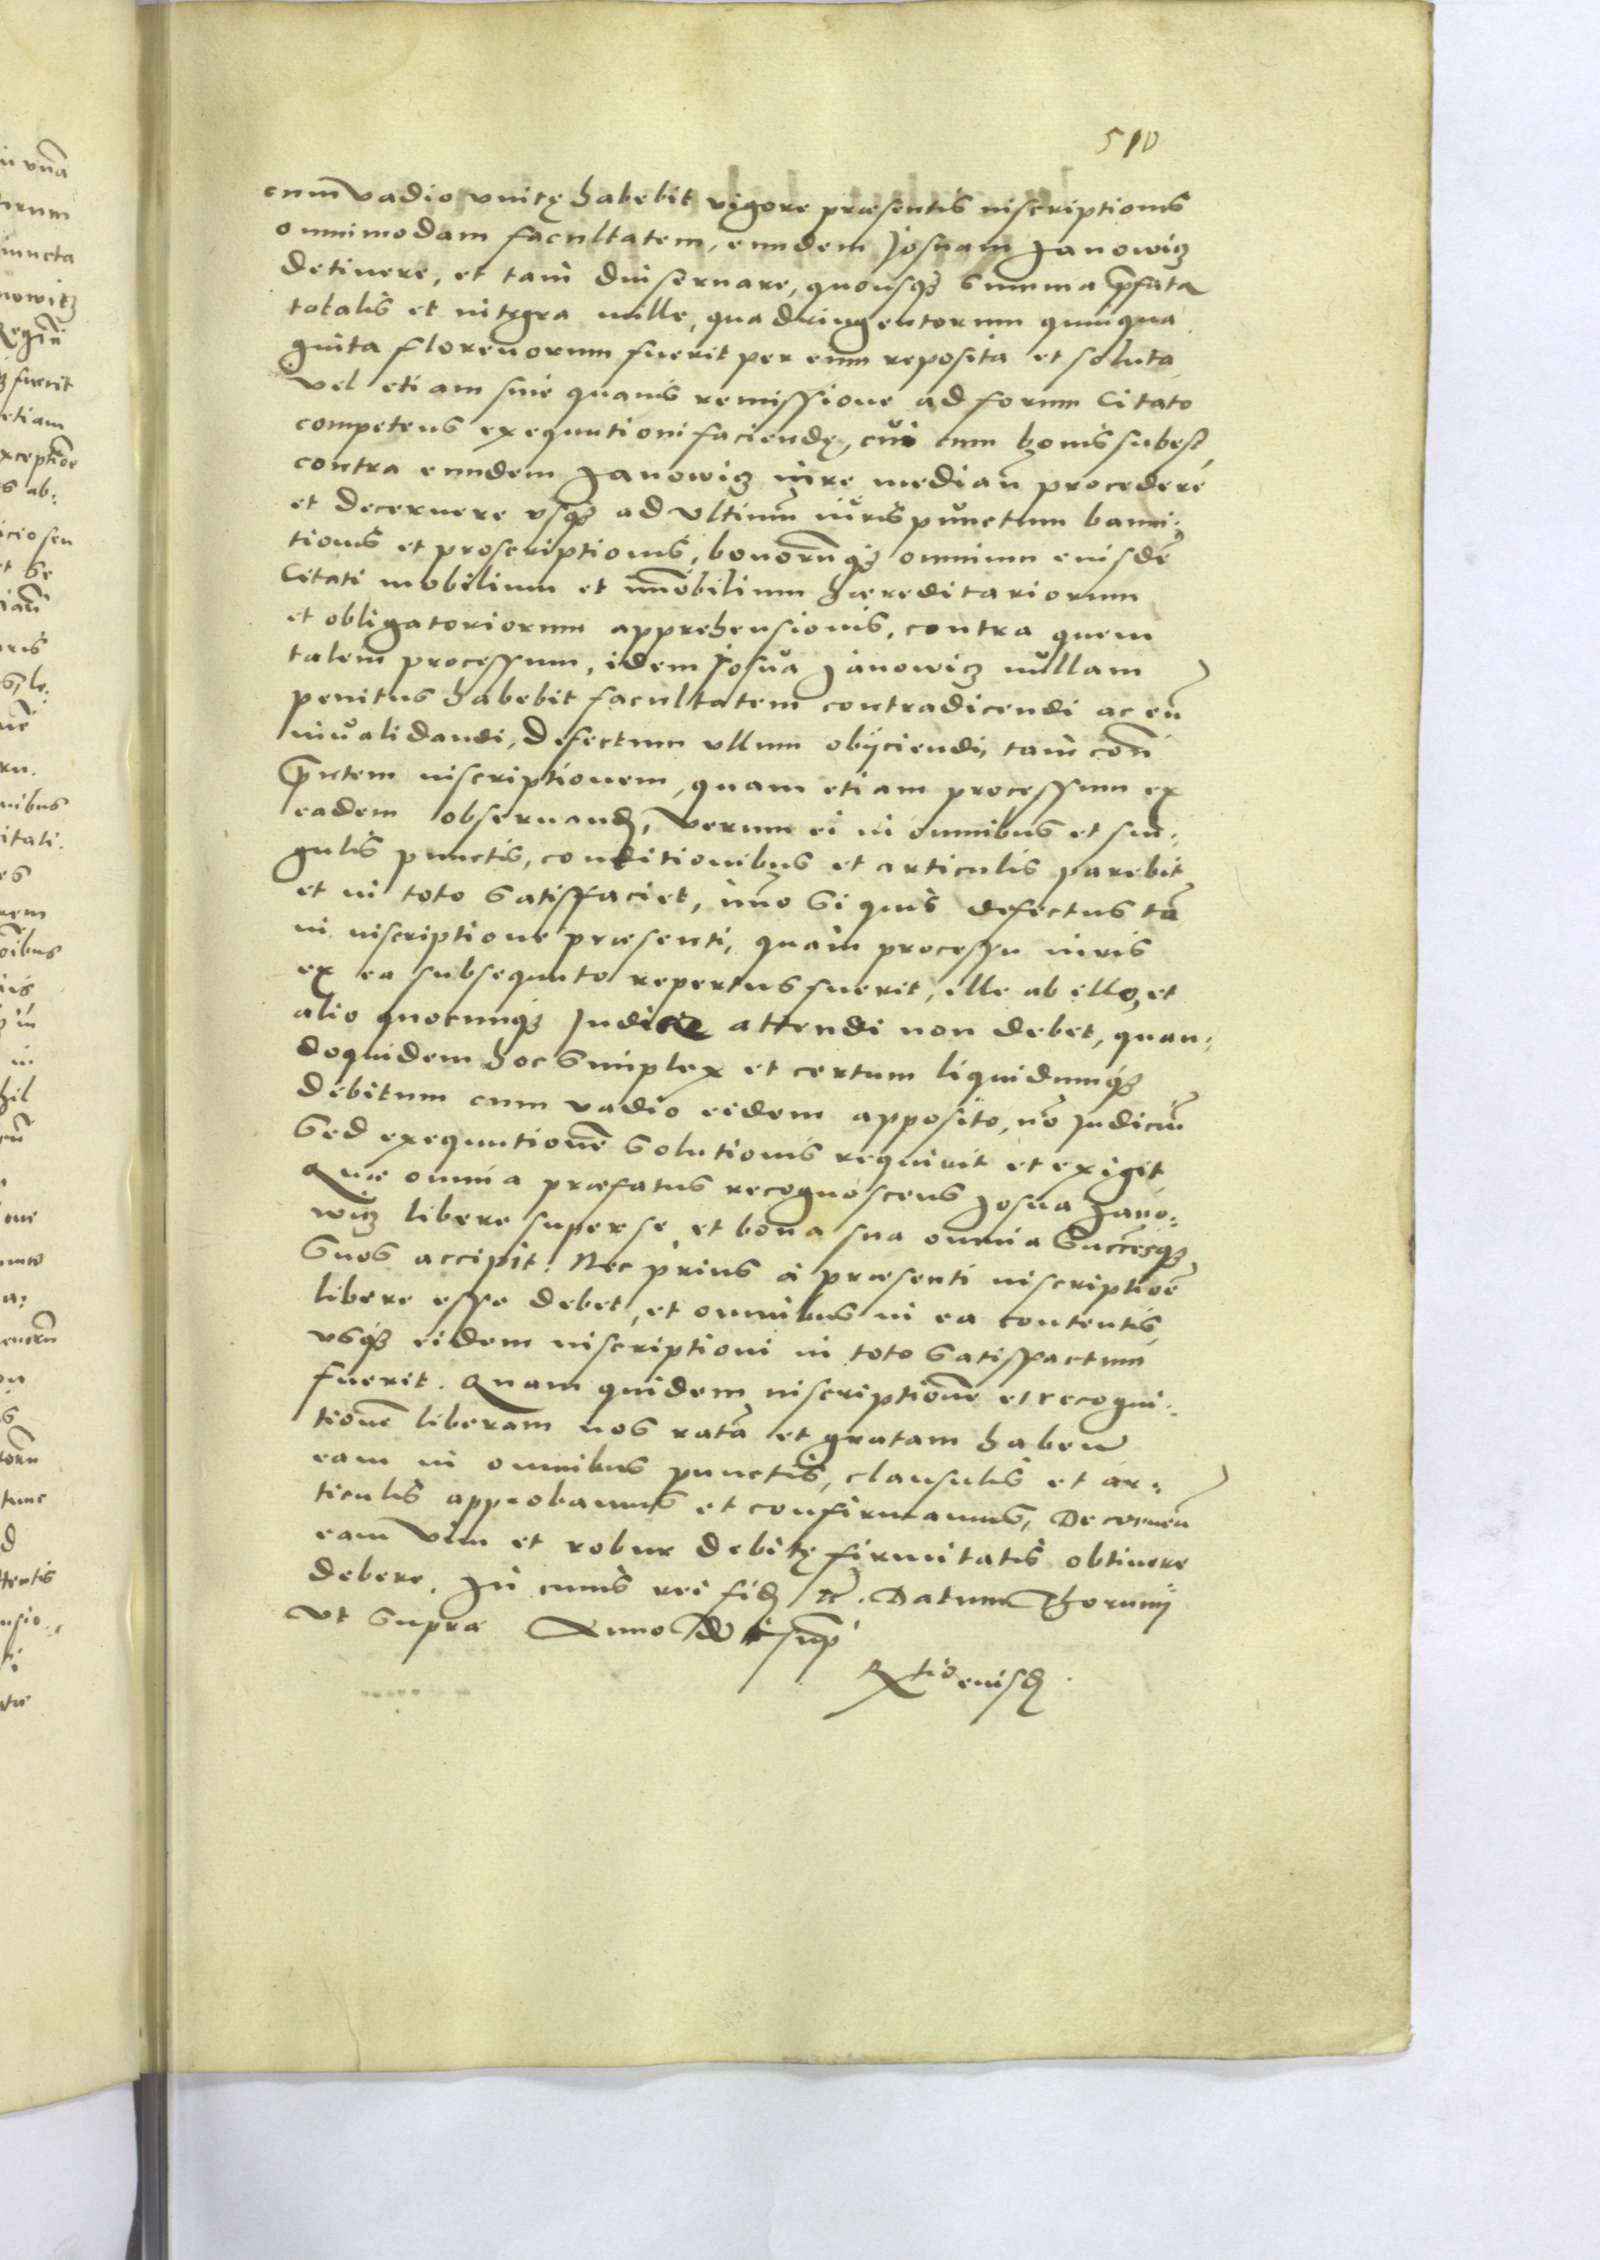 510
cum vadio vnitę habebit vigore præsentis inscriptionis
omnimodam facultatem, eundem Josuam Janowicz
detinere, et tam diu seruare, quousq₃ summa p̄fata
totalis et integra mille, quadringentorum quinqua
ginta florenorum fuerit per eum reposita et soluta
vel etiam sine quauis remissione ad forum Citato
competens exequutioni faciendę, cui cum bonis subest,
contra eundem Janowicz iure median̄ procedere
et decernere vsq₃ ad vltimū iuris punctum banni:
tionis et proscriptionis, bonorūq₃ omnium eiusdē
Citati mobilium et im̄obilium hæreditariorum
et obligatoriorum apprehensionis, contra quem
talem processum, idem Josua Janowicz nullam
penitus habebit facultatem contradicendi ac eū
inualidandi, Defectum vllum obijciendi, tam con̄
p̄ntem inscriptionem, quam etiam processum ex
eadem obseruand, Verum ei in omnibus et sin:
gulis punctis, conditionibus et articulis parebit
et in toto satisfaciet, im̄o si quis defectus tā
in inscriptione præsenti, quam processu iuris
ex ea subsequuto repertus fuerit, ille ab illo, et
alio quocunq₃ Judice attendi non debet, quan:
doquidem hoc simplex et certum liquidumq₃
debitum cum vadio eidem apposito, nō Judiciū
sed exequutionē solutionis requirit et exigit
Quæ omnia præfatus recognoscens Josua Jano:
wicz libere super se, et bona sua omnia Succesq₃
suos accipit. Nec prius à præsenti inscriptioē
libere esse debet, et omnibus in ea contentis,
vsq₃ eidem inscriptioni in toto satisfactum
fuerit. Quam quidem inscriptionē et recogni:
tionē liberam nos ratā et gratam haben̄
eam in omnibus punctis, clausulis et ar:
ticulis approbamus et confirmamus, Decernen̄
eam vim et robur debitę firmitatis obtinere
debere. In cuius rei fid etc. Datum Thorunij
vt supra Anno d sup
Rtio eiusd